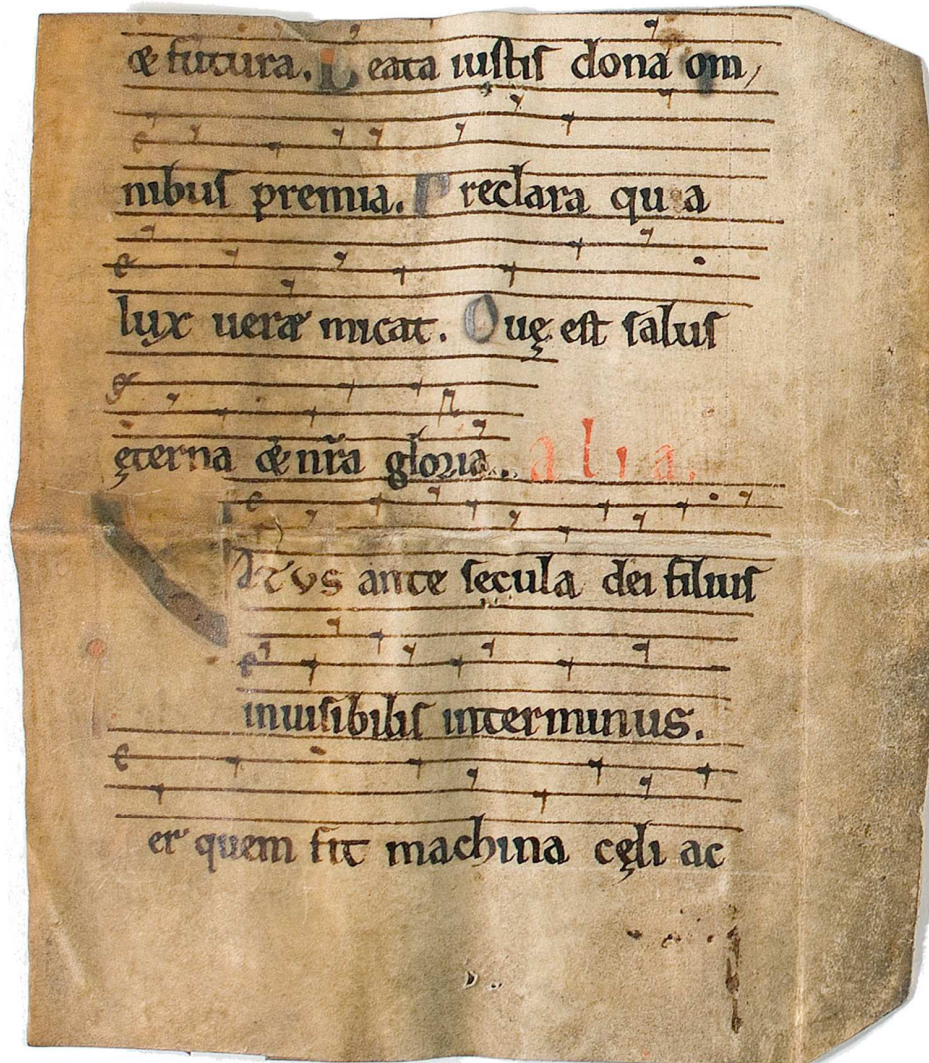 & futura. Beata iustis dona om,
nibus premia. Preclara qu a
lux ueræ micat. Quę est salus
ęterna & nr̄a gloria. alia.
Atvs ante secula dei filius
inuisibilis interminus.
er quem fit machina cęli ac